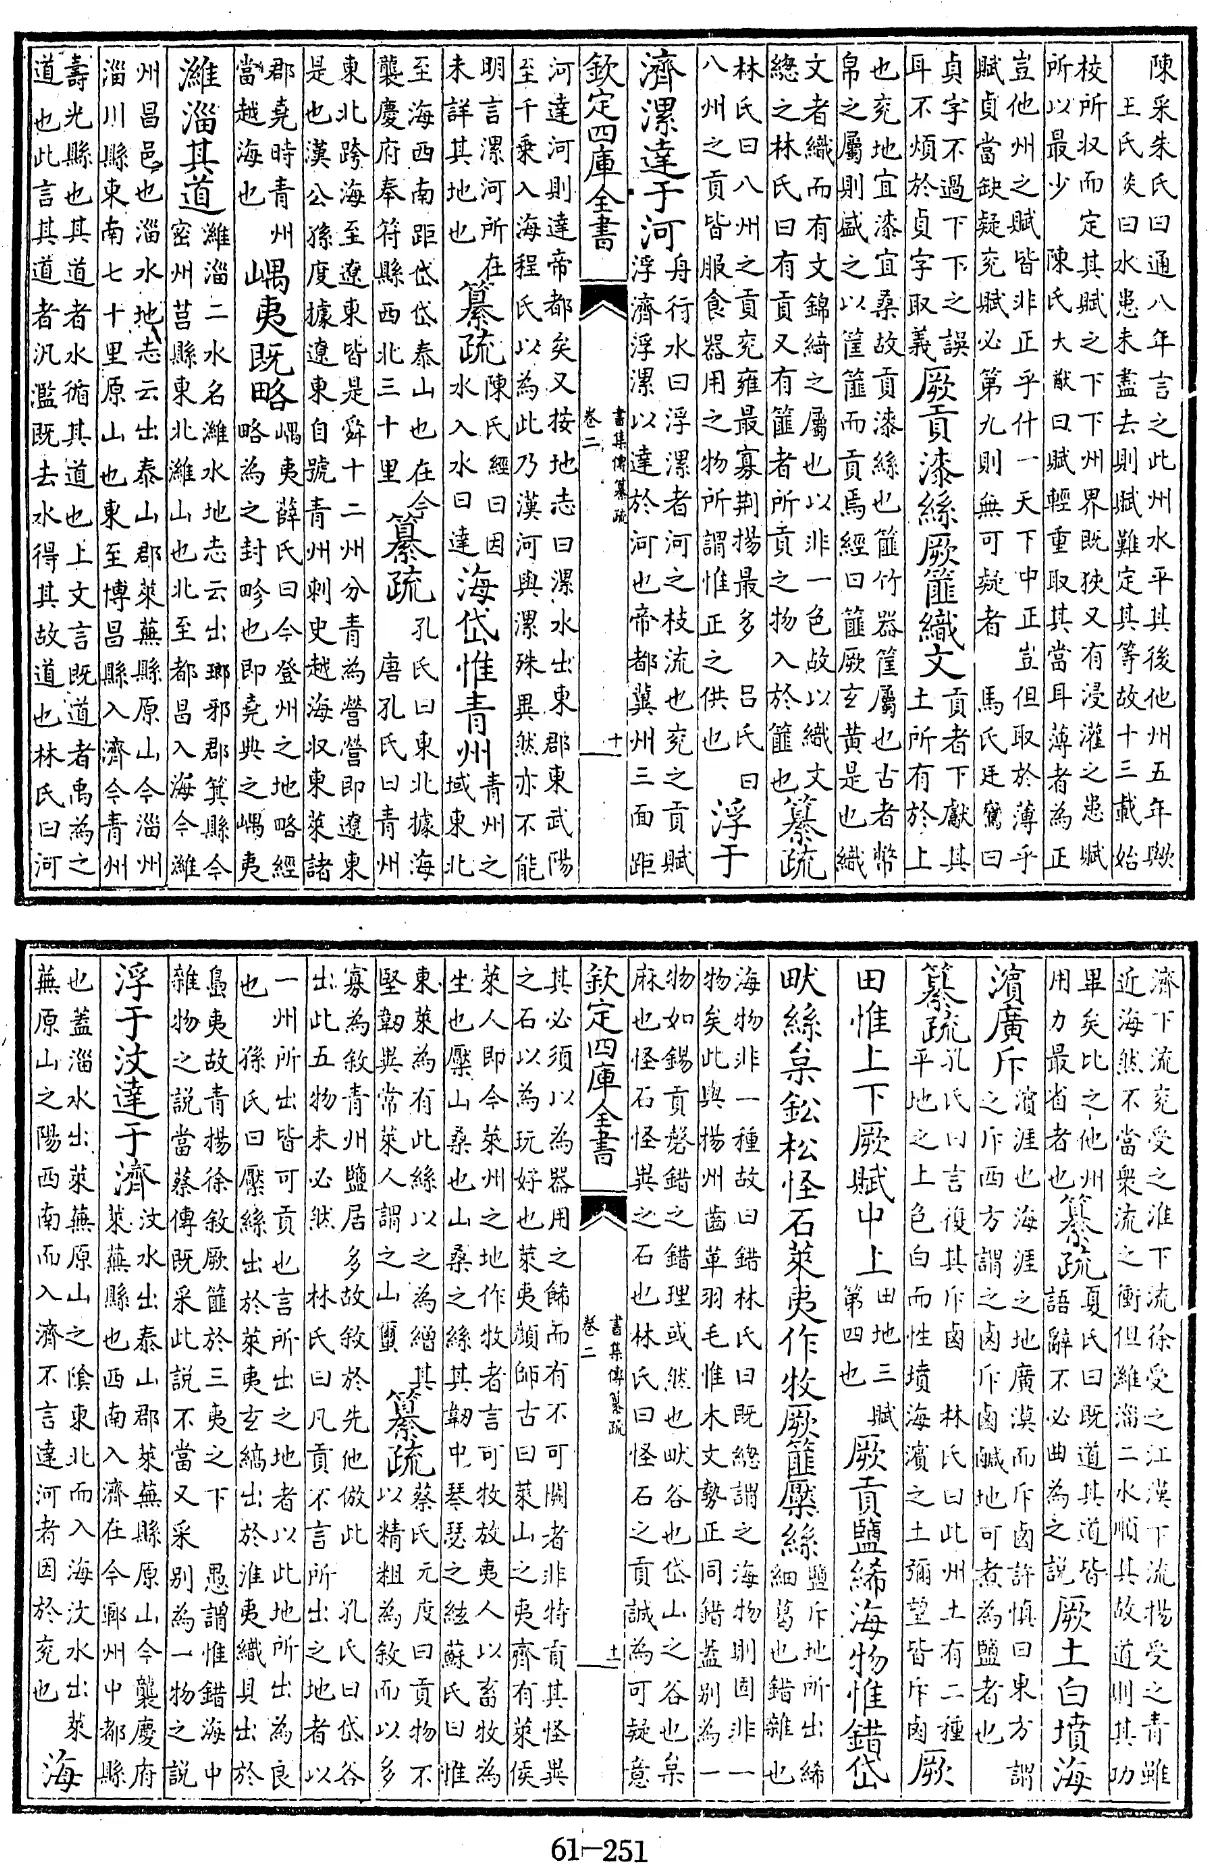 陳采朱氏曰通八年言之此州水平其後他州五年歟
王氏炎曰水患未盡去則賦難定其等故十三載始
校所収而定其賦之下下州界既狹又有浸灌之患賦
所以最少 陳氏大猷曰賦輕重取其當耳薄者為正
豈他州之賦皆非正乎什一天下中正豈但取於薄乎
賦貞當缺疑兖賦必第九則無可疑者 馬氏廷鸞曰
貞字不過下下之誤耳不煩於貞字取義 厥貢漆絲厥篚織文 貢者下獻其土所有於上
也兖地宜漆宜桑故貢漆絲也篚竹器筐屬也古者幣
帛之屬則盛之以筐篚而貢焉經曰篚厥玄黄是也織
文者織而有文錦綺之屬也以非一色故以織文總之林氏曰有貢又有篚者所貢之物入於篚也 纂疏
林氏曰八州之貢兖雍最寡荆揚最多 吕氏曰八州之貢皆服食器用之物所謂惟正之供也 浮于
濟漯達于河 舟行水曰浮漯者河之枝流也兖之貢賦浮濟浮漯以達於河也帝都冀州三面距
欽定四庫全書 書集傳纂疏 卷二 十
河達河則達帝都矣又按地志曰漯水出東郡東武陽
至千乗入海程氏以為此乃漢河與漯殊異然亦不能
明言漯河所在未詳其地也 纂疏 陳氏經曰因水入水曰達 海岱惟青州 青州之域東北
至海西南距岱岱泰山也在今襲慶府奉符縣西北三十里 纂疏 孔氏曰東北據海 唐孔氏曰青州
東北跨海至遼東皆是舜十二州分青為營營即遼東
是也漢公孫度據遼東自號青州刺史越海収東萊諸
郡堯時青州當越海也 嵎夷既略 嵎夷薛氏曰今登州之地略經略為之封畛也即堯典之嵎夷
濰淄其道 濰淄二水名濰水地志云出瑯邪郡箕縣今密州莒縣東北濰山也北至都昌入海今濰
州昌邑也淄水地志云出泰山郡萊蕪縣原山今淄州
淄川縣東南七十里原山也東至博昌縣入濟今青州
壽光縣也其道者水循其道也上文言既道者禹為之
道也此言其道者汎濫既去水得其故道也林氏曰河
濟下流兖受之淮下流徐受之江漢下流揚受之青雖
近海然不當衆流之衝但濰淄二水順其故道則其功
畢矣比之他州用力最省者也 纂疏 夏氏曰既道其道皆語辭不必曲為之說 厥土白墳海
濱廣斥 濱涯也海涯之地廣漠而斥鹵許慎曰東方謂之斥西方謂之鹵斥鹵鹹地可煮為鹽者也
纂疏 孔氏曰言復其斥鹵 林氏曰此州土有二種平地之土色白而性墳海濱之土彌望皆斥鹵 厥
田惟上下厥賦中上 田地三賦第四也 厥貢鹽絺海物惟錯岱
畎絲枲鈆松怪石萊夷作牧厥篚檿絲 鹽斥地所出絺細葛也錯雜也
海物非一種故曰錯林氏曰既總謂之海物則固非一
物矣此與揚州齒革羽毛惟木文勢正同錯蓋别為一
物如錫貢磬錯之錯理或然也畎谷也岱山之谷也枲
麻也怪石怪異之石也林氏曰怪石之貢誠為可疑意
欽定四庫全書 書集傳纂疏 卷二 十一
其必須以為器用之飾而有不可闕者非特貢其怪異
之石以為玩好也萊夷顔師古曰萊山之夷齊有萊侯
萊人即今萊州之地作牧者言可牧放夷人以畜牧為
生也檿山桑也山桑之絲其韌中琴瑟之絃蘇氏曰惟
東萊為有此絲以之為繒其堅韌異常萊人謂之山蠒 纂疏 蔡氏元度曰貢物不以精粗為敘而以多
寡為敘青州鹽居多故敘於先他倣此 孔氏曰岱谷
出此五物未必然 林氏曰凡貢不言所出之地者以
一州所出皆可貢也言所出之地者以此地所出為良
也 孫氏曰檿絲出於萊夷玄縞出於淮夷織貝出於
島夷故青揚徐敘厥篚於三夷之下 愚謂惟錯海中
雜物之說當蔡傳既采此說不當又采别為一物之說
浮于汶達于濟 汶水出泰山郡萊蕪縣原山今襲慶府萊蕪縣也西南入濟在今鄆州中都縣
也蓋淄水出萊蕪原山之陰東北而入海汶水出萊蕪原山之陽西南而入濟不言達河者因於兖也 海
61-251